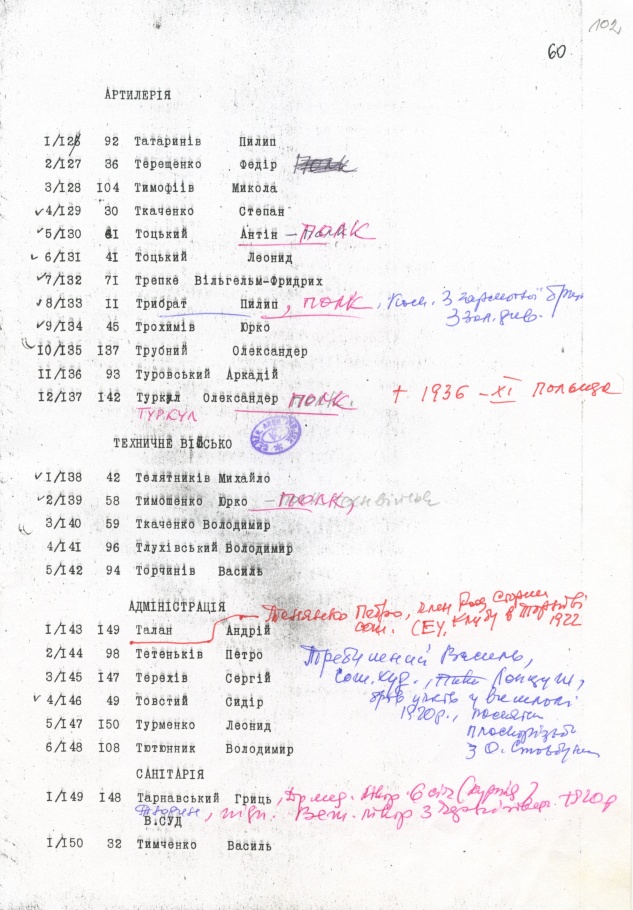 102
60
АРТИЛЕРІЯ
I/126 92 Татаринів Пилип
2/127 36 Терещенко Федір полк
3/128 I04 Тимофіів Микола
4/129 30 Ткаченко Степан
5/130 6I Тоцький Антін – полк
6/131 4I Тоцький Леонид
7/132 7I Трепке Вільгельм-Фридрих
8/133 II Трибрат Пилип, полк, Ком. 3 гарматної бриг
3 зал. див.
9/134 45 Трохимів Юрко
I0/135 I37 Трубний Олександер
II/136 93 Туровський Аркадій
I2/137 I42 Туркул Олександер полк. + 1936 – XI Польща
ТУРКУЛ
ТЕХНИЧНЕ ВІЙСЬКО
I/138 42 Телятників Михайло
2/139 58 Тимошенко Юрко – полк,
3/140 59 Ткаченко Володимир
4/141 96 Тлухівський Володимир
5/142 94 Торчинів Василь
АДМІНІСТРАЦІЯ
Тенянко Петро, член Ради Старшин
сот. СЕУ, Клубу в Тарнові
1922
I/143 I49 Талан Андрій
2/144 98 Тетеньків Петро
Василь,
3/145 I47 Терехів Сергій
сот. куд.,
4/146 49 Товстий Сидір
брав участь у
1920р.,
5/147 I50 Турменко Леонид
6/148 I08 Тютюнник Володимир
з О.
САНІТАРІЯ
I/149 I48 Тарнавський Гриць, Др мед. лікар 6 січ
лікар 3 +1920р
В.СУД
I/150 32 Тимченко Василь